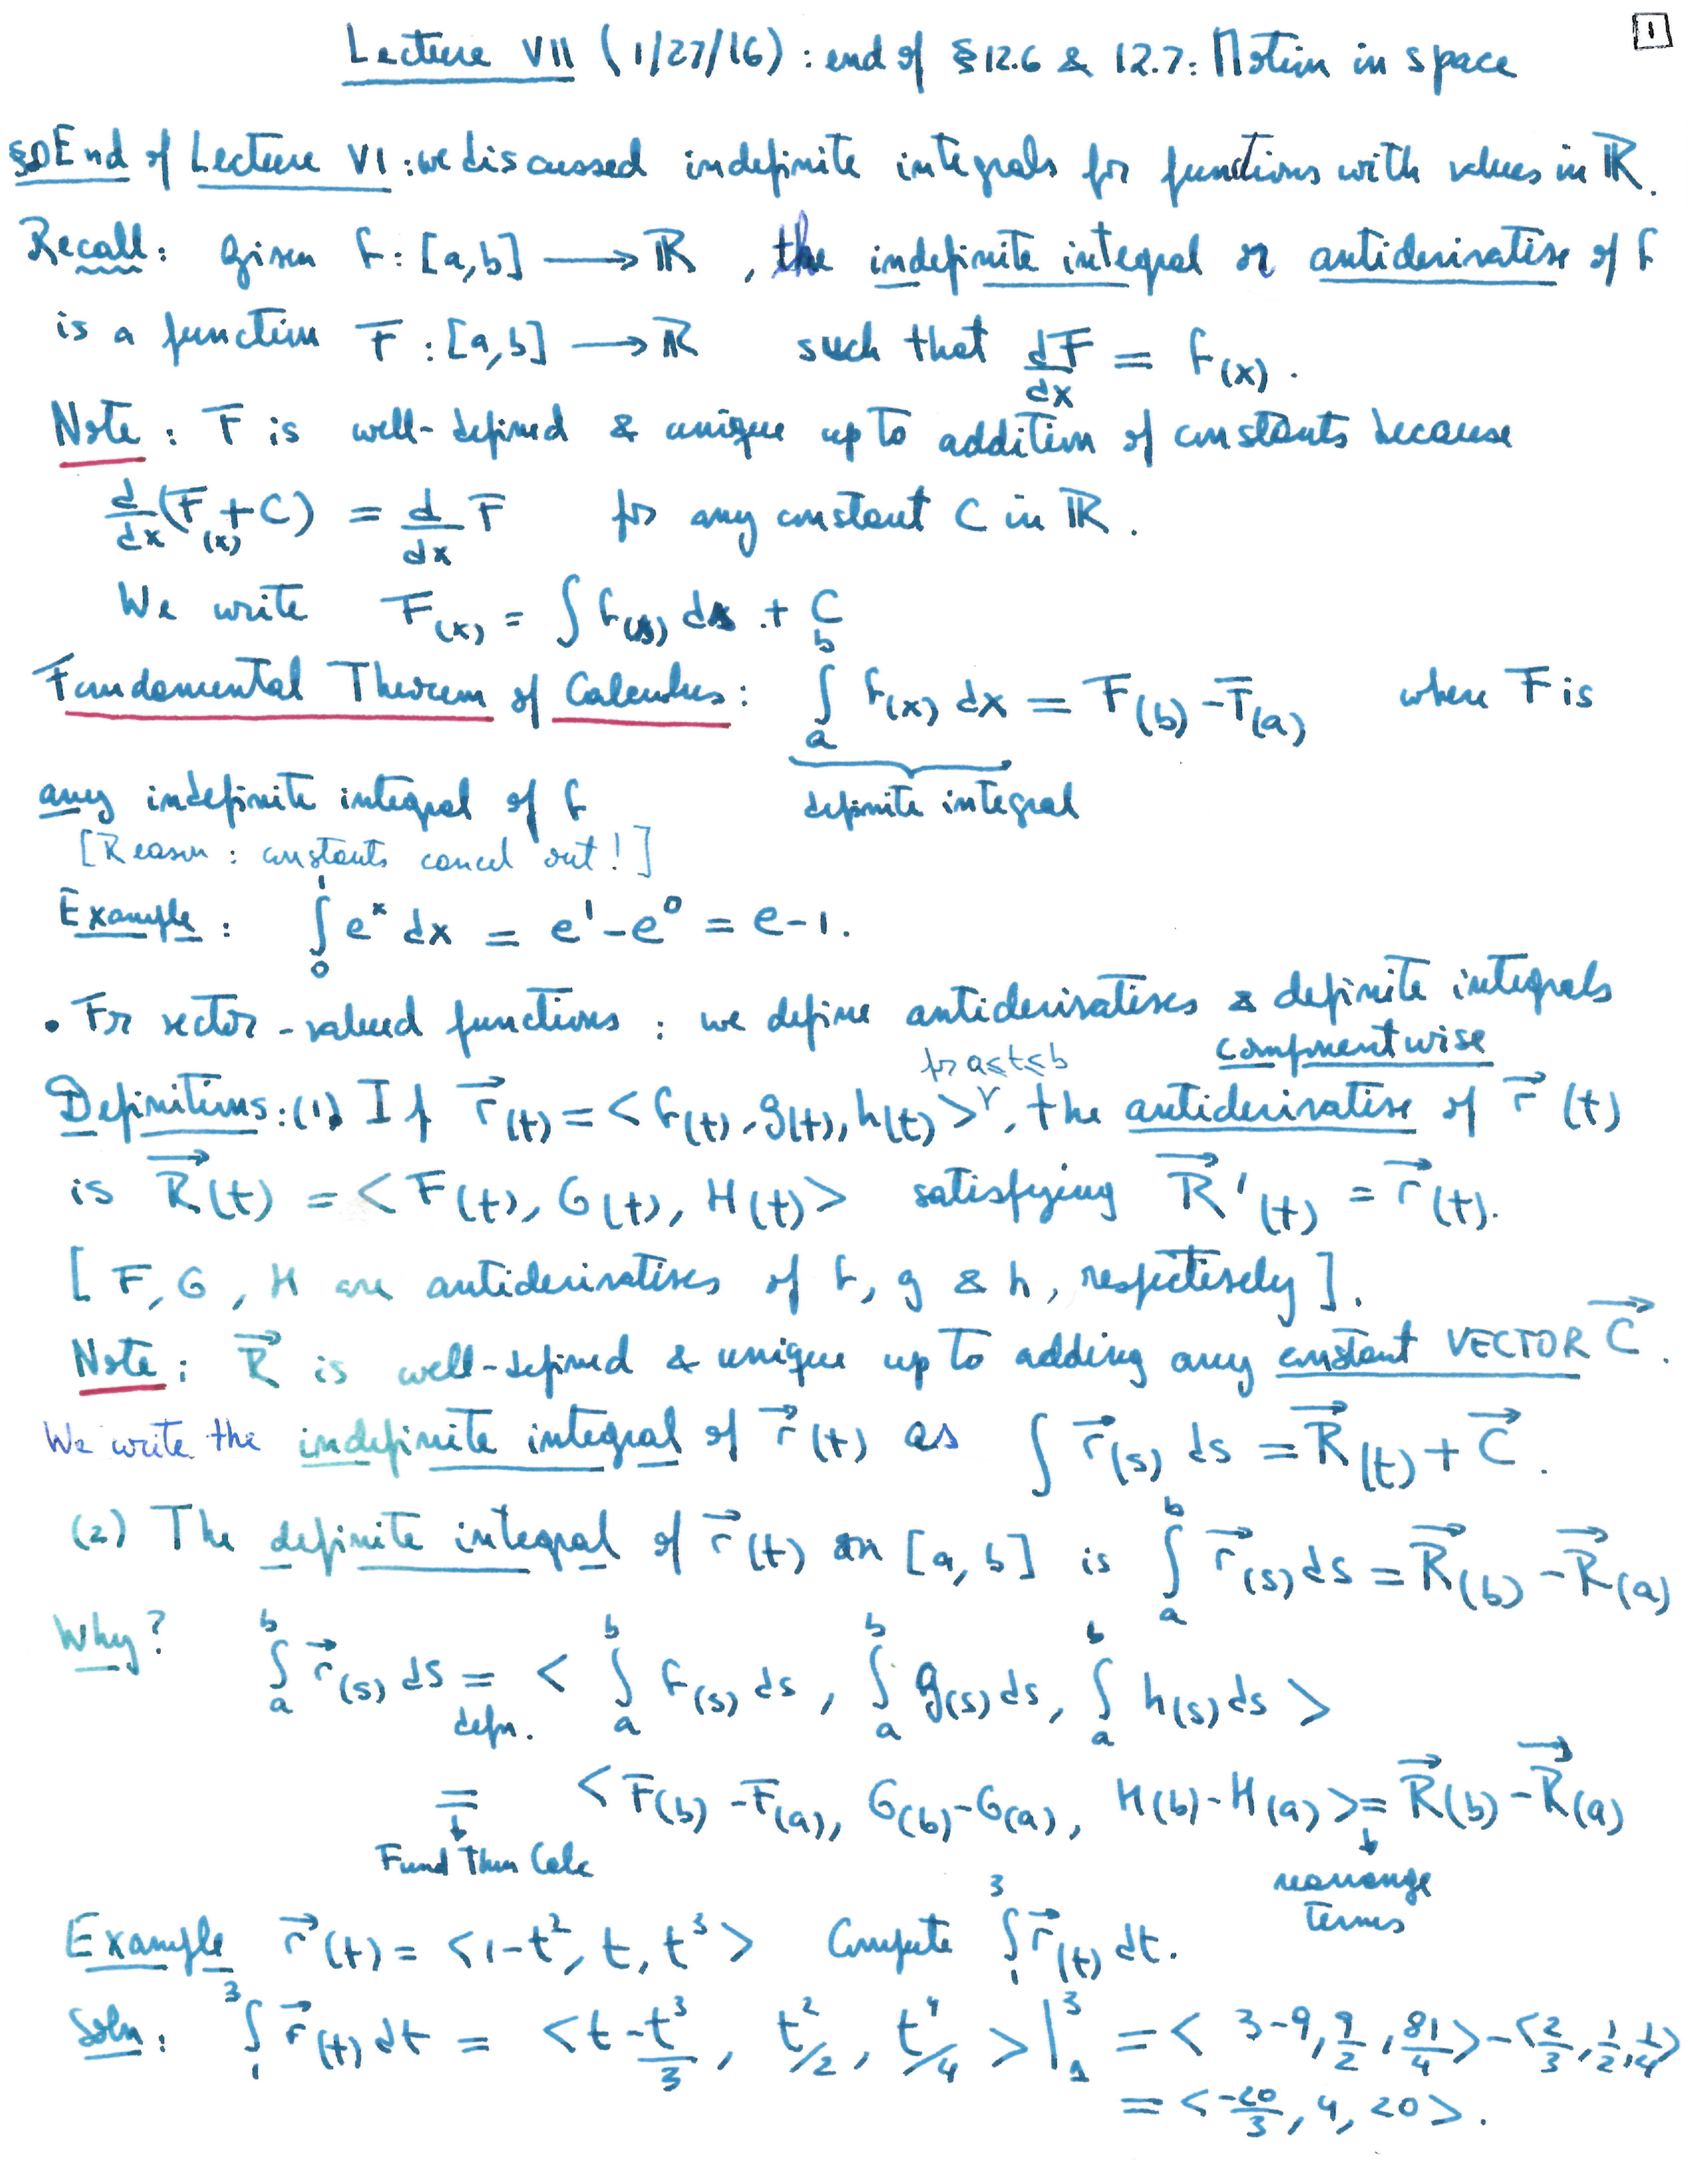 1
Lecture VII (1/27/16): end of §12.6 & 12.7: Motion in space
§0 End of Lecture VI: we discussed indefinite integrals for functions with values in ℝ.
Recall: Given f: [a,b] ⟶ ℝ, the indefinite integral or antiderivative of f
is a function F: [a,b] ⟶ ℝ such that dF/dx = f(x).
Note: F is well-defined & unique up to addition of constants because
d/dx (F(x) + C) = d/dx F for any constant C in ℝ.
We write F(x) = ∫ f(s) ds + C
Fundamental Theorem of Calculus: ∫_a^b f(x) dx = F(b) - F(a) where F is
any indefinite integral of f definite integral
[Reason: constants cancel out!]
Example: ∫_0^1 e^x dx = e^1 - e^0 = e-1.
• For vector-valued functions: we define antiderivatives & definite integrals
componentwise
Definitions: (1) If r⃗(t) = <f(t), g(t), h(t)> for a≤t≤b, the antiderivative of r⃗(t)
is R⃗(t) = <F(t), G(t), H(t)> satisfying R⃗'(t) = r⃗(t).
[F, G, H are antiderivatives of f, g & h, respectively].
Note: R⃗ is well-defined & unique up to adding any constant VECTOR C⃗.
We write the indefinite integral of r⃗(t) as ∫ r⃗(s) ds = R⃗(t) + C⃗.
(2) The definite integral of r⃗(t) on [a,b] is ∫_a^b r⃗(s) ds = R⃗(b) - R⃗(a)
Why? ∫_a^b r⃗(s) ds = < ∫_a^b f(s) ds, ∫_a^b g(s) ds, ∫_a^b h(s) ds >
defn.
= <F(b) - F(a), G(b) - G(a), H(b) - H(a)> = R⃗(b) - R⃗(a)
Fund Thm Calc rearrange
terms
Example r⃗(t) = <1-t^2, t, t^3> Compute ∫_1^3 r⃗(t) dt.
Soln: ∫_1^3 r⃗(t) dt = <t - t^3/3, t^2/2, t^4/4>|_1^3 = <3-9, 9/2, 81/4> - <2/3, 1/2, 1/4>
= <-20/3, 4, 20>.